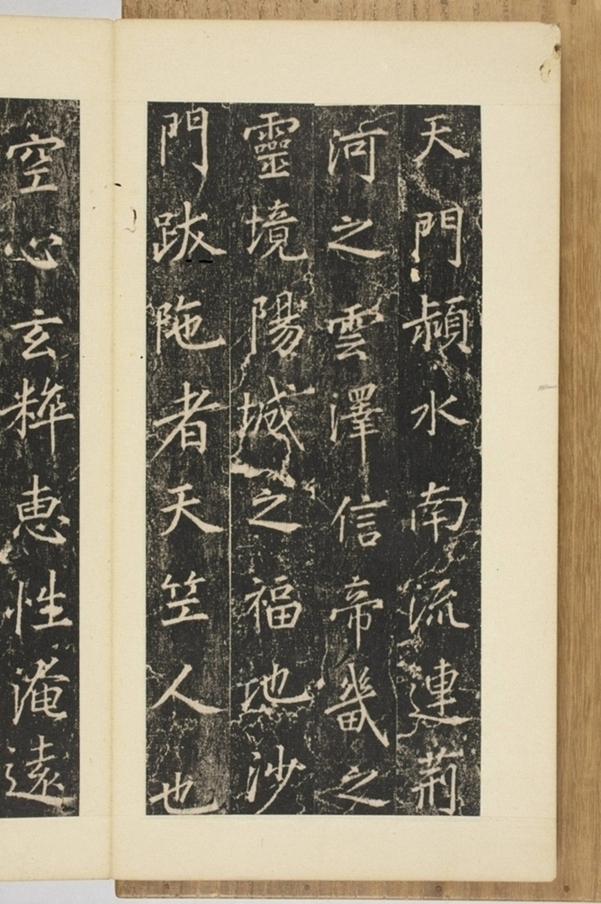 天門頴水南流連荆
河之雲澤信帝畿之
靈境陽城之福地沙
門跋陁者天竺人也
空心玄粹惠性淹遠